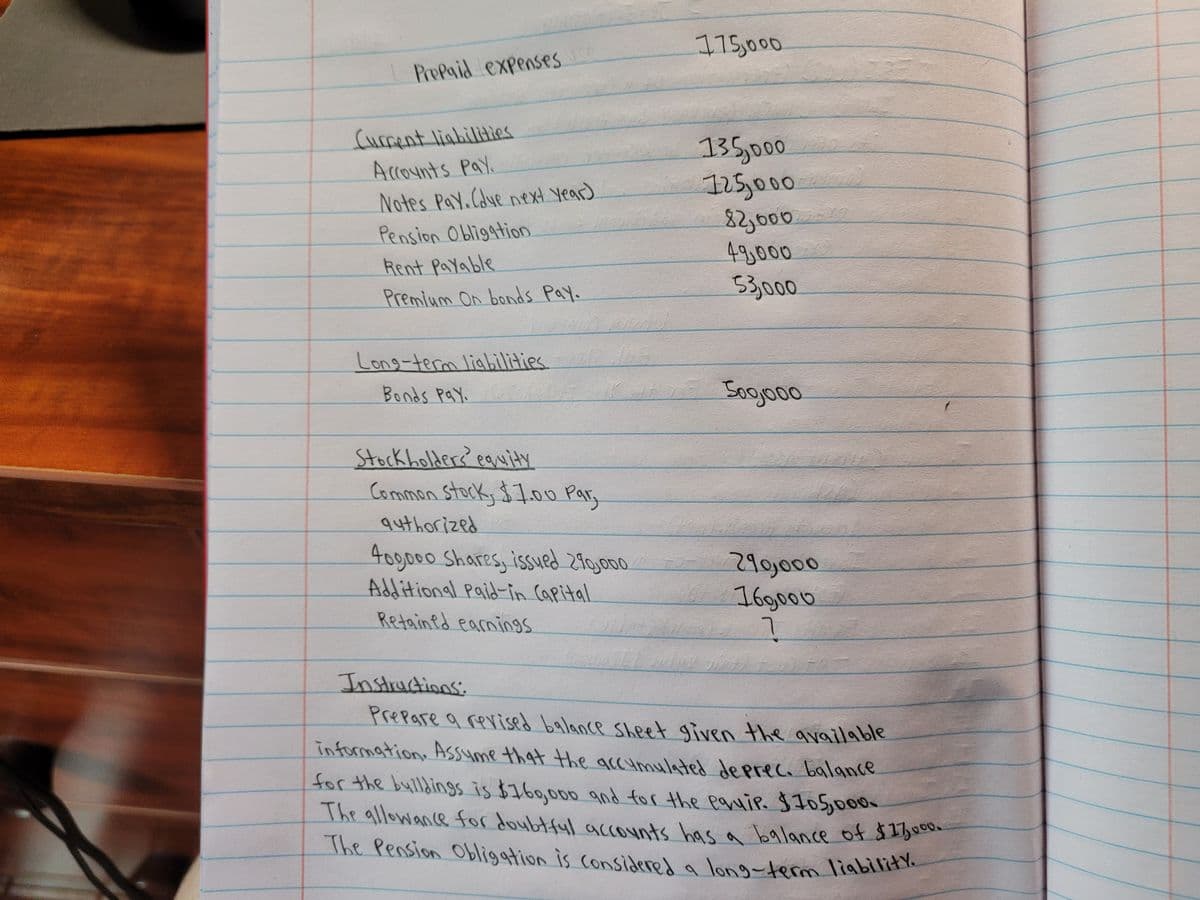 Prepaid expenses 175,000
Current liabilities
Accounts Pay. 135,000
Notes Pay. (due next year) 125,000
Pension Obligation 82,000
Rent Payable 49,000
Premium On bonds Pay. 53,000
Long-term liabilities
Bonds Pay. 500,000
Stockholders' equity
Common stock, $1.00 Par,
authorized
400,000 Shares, issued 290,000 290,000
Additional Paid-in Capital 160,000
Retained earnings ?
Instructions:
Prepare a revised balance sheet given the available
information. Assume that the accumulated deprec. balance
for the buildings is $160,000 and for the equip. $105,000.
The allowance for doubtful accounts has a balance of $17,000.
The Pension Obligation is considered a long-term liability.